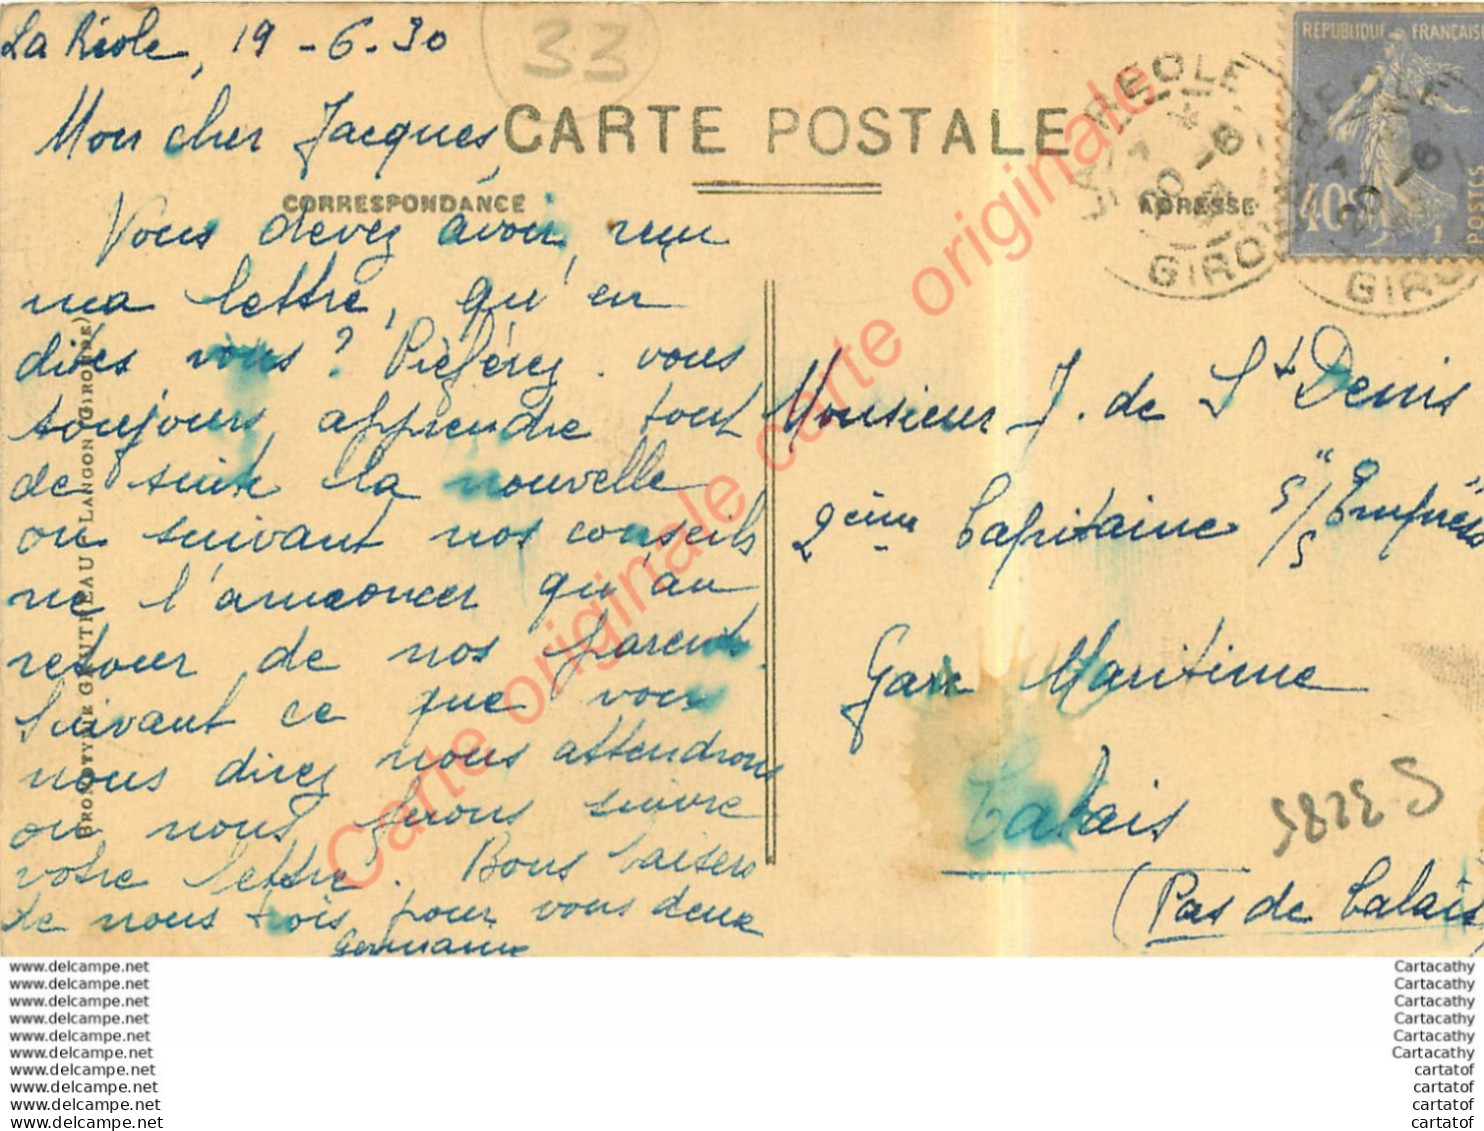 La Réole, 19-6-30
33
Mon cher Jacques,
CARTE POSTALE
CORRESPONDANCE
ADRESSE
Vous devez avoir, reçu
ma lettre, qu'en
dites vous ? Préférez-vous
toujours apprendre tout
de suite la nouvelle
ou suivant nos conseils
ne l'annoncer qu'au
retour de nos parents.
Suivant ce que vous
nous direz nous attendrons
ou nous ferons suivre
votre lettre. Bons baisers
de nous trois pour vous deux
Germaine
BROMOTYPIE GAUTREAU LANGON (GIRONDE)
RÉPUBLIQUE FRANÇAISE
40c
POSTES
LA RÉOLE
20-6
GIRONDE
Monsieur J. de St Denis
2ème Capitaine S/S "Empress"
Gare Maritime
Calais
(Pas de Calais)
Carte originale carte originale carte originale
www.delcampe.net
www.delcampe.net
www.delcampe.net
www.delcampe.net
www.delcampe.net
www.delcampe.net
www.delcampe.net
www.delcampe.net
www.delcampe.net
www.delcampe.net
Cartacathy
Cartacathy
Cartacathy
Cartacathy
Cartacathy
Cartacathy
cartatof
cartatof
cartatof
cartatof